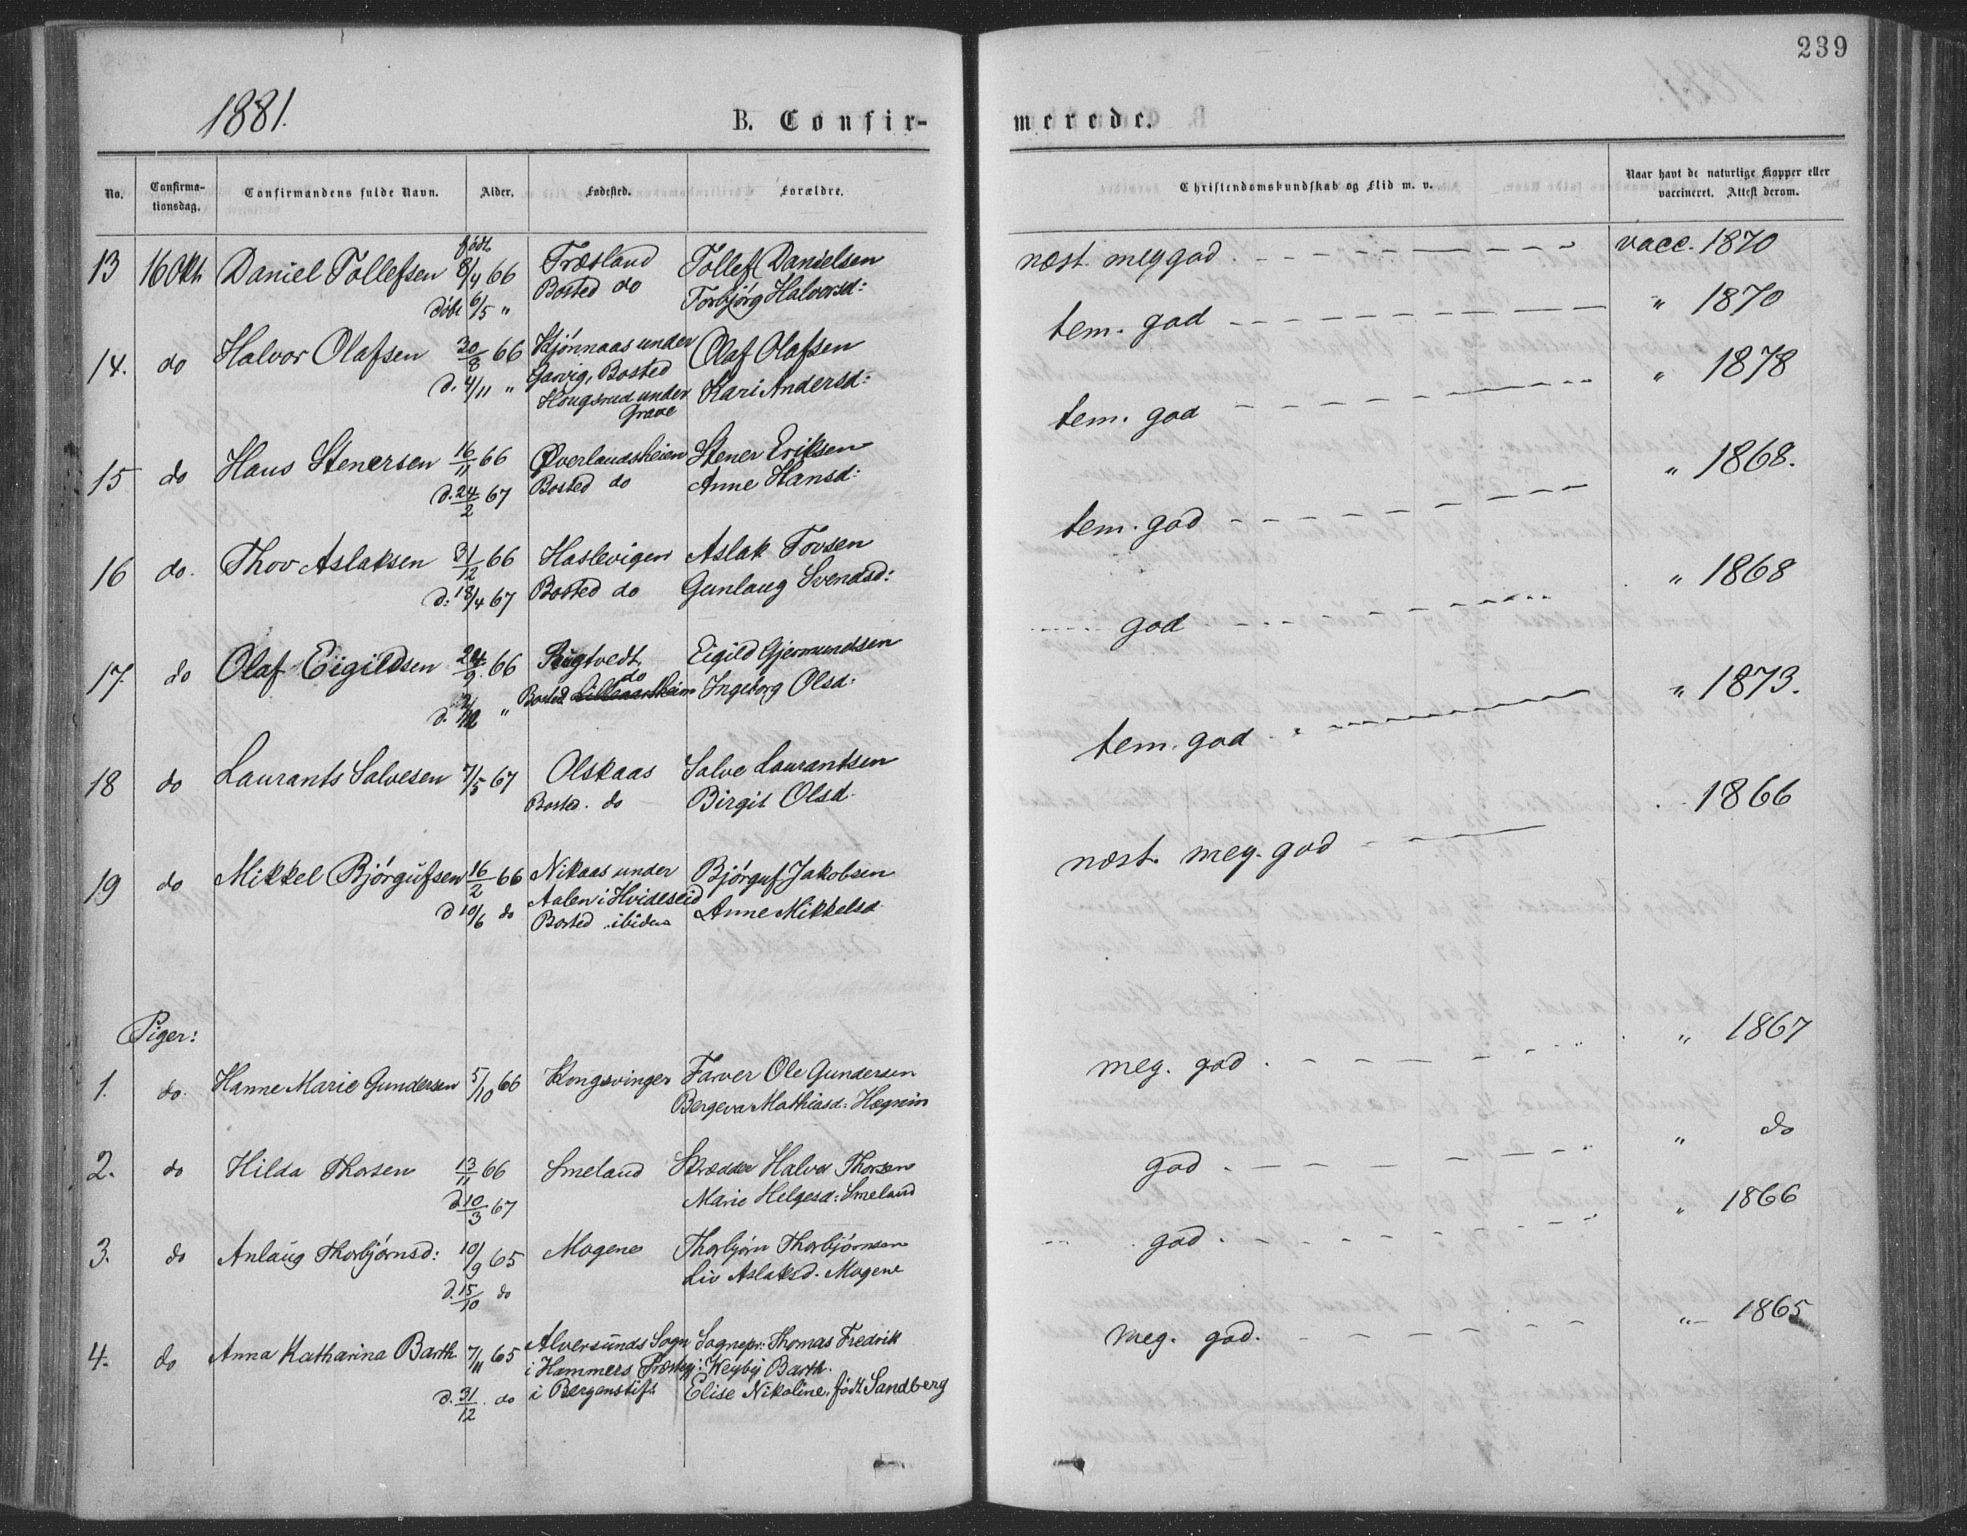 239
1881.
B. Confir-
merede.
No.
Confirma-
tionsdag.
Confirmandens fulde Navn.
Alder.
Fødested.
Forældre.
Christendomskundskab og Flid m. v.
Naar havt de naturlige Kopper eller
vaccineret. Attest derom.
13 16 Okt Daniel Tollefsen født 8/4 66 Træsland Tollef Danielsen næst meg god vacc. 1870
døbt 6/5 " Bosted do Torbjørg Halvorsd:
14. do Halvor Olafsen 30/8 66 Kjønnaas under Olaf Olafsen tem. god " 1870
d. 4/11 " Garvig, Bosted Kari Andersd:
Hougsrud under
Grave
15 do Hans Stenersen 16/11 66 Øverlandsheien Stener Eriksen tem. god " 1878
d. 24/2 67 Bosted do Anne Hansd:
16 do. Thov Aslaksen 31/12 66 Haslevigen Aslak Tovsen tem. god " 1868.
d: 18/4 67 Bosted do Gunlaug Svendsd:
17. do Olaf Eigildsen 24/9. 66 Rugtvedt Eigild Gjermundsen god " 1868
d. " Bosted do Ingeborg Olsd:
18 do Laurants Salvesen 7/5 67 Olskaas Salve Laurantsen tem. god " 1873.
Bosted. do Birgit Olsd.
19 do Mikkel Bjørgufsen 16/2 66 Nikaas under Bjørguf Jakobsen næst. meg. god 1866
d 10/6 do Aalen i Hvideseid Anne Mikkelsd
Bosted ibidem
Piger:
1. do. Hanne Marie Gundersen 5/10 66 Kongsvinger Farver Ole Gundersen meg. god " 1867
Bergeva Mathiasd: Hegnin
2. do Hilda Thorsen 13/11 66 Smeland Skrædder Halvor Thorsen god " do
d. 10/3 67 Marie Helgesd: Smeland
3. do Anlaug Thorbjørnsd: 10/9 65 Mogene Thorbjørn Thorbjørnsen god " 1866
d. 15/10 do Liv Aslaksd. Mogene
4. do Anna Katharina Barth 7/11 65 Alversunds Sogn Sognepr: Thomas Fredrik meg. god. " 1865
i Hammers Præstegj: Weyby Barth.
d. 31/12. do i Bergenstift Elise Nikoline, født Sandberg